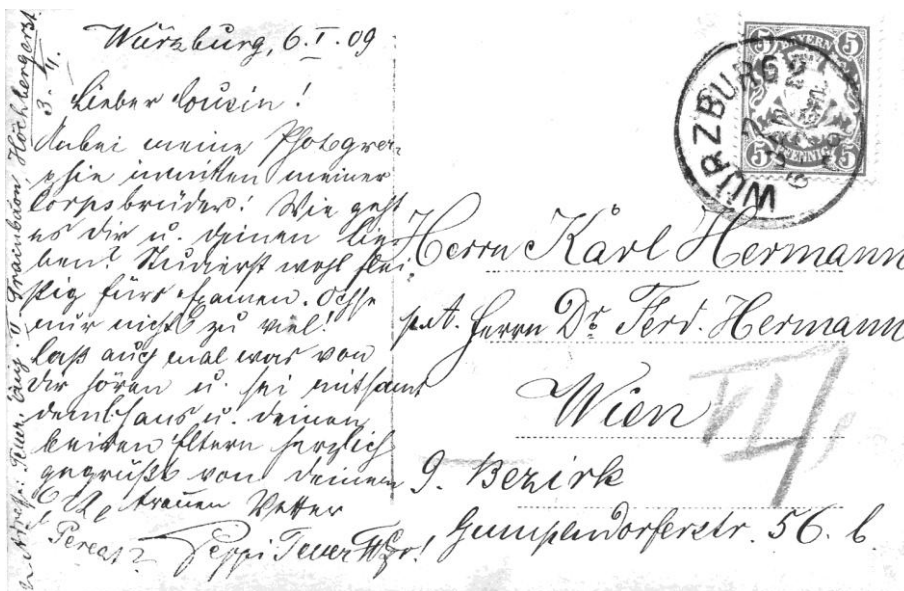 Würzburg, 6.I.09
Lieber Cousin!
Anbei meine Photogra-
phie inmitten meiner
Corpsbrüder! Wie geht
es dir u. deinen Lie-
ben? Studierst wohl flei-
ßig fürs Examen. Ochse
nur nicht zu viel!
Laß auch mal was von
dir hören u. sei mitsamt
dem Hans u. deinen
beiden Eltern herzlich
gegrüßt von deinem
treuen Vetter
Peppi
Adresse: Trainbaon Höchbergerst.
3.
BAYERN
5 5
PFENNIG
5 5
WÜRZBURG 2
Herrn Karl Hermann
p.A. Herrn Dr. Ferd. Hermann
Wien
9. Bezirk
Gumpendorferstr. 56. b.